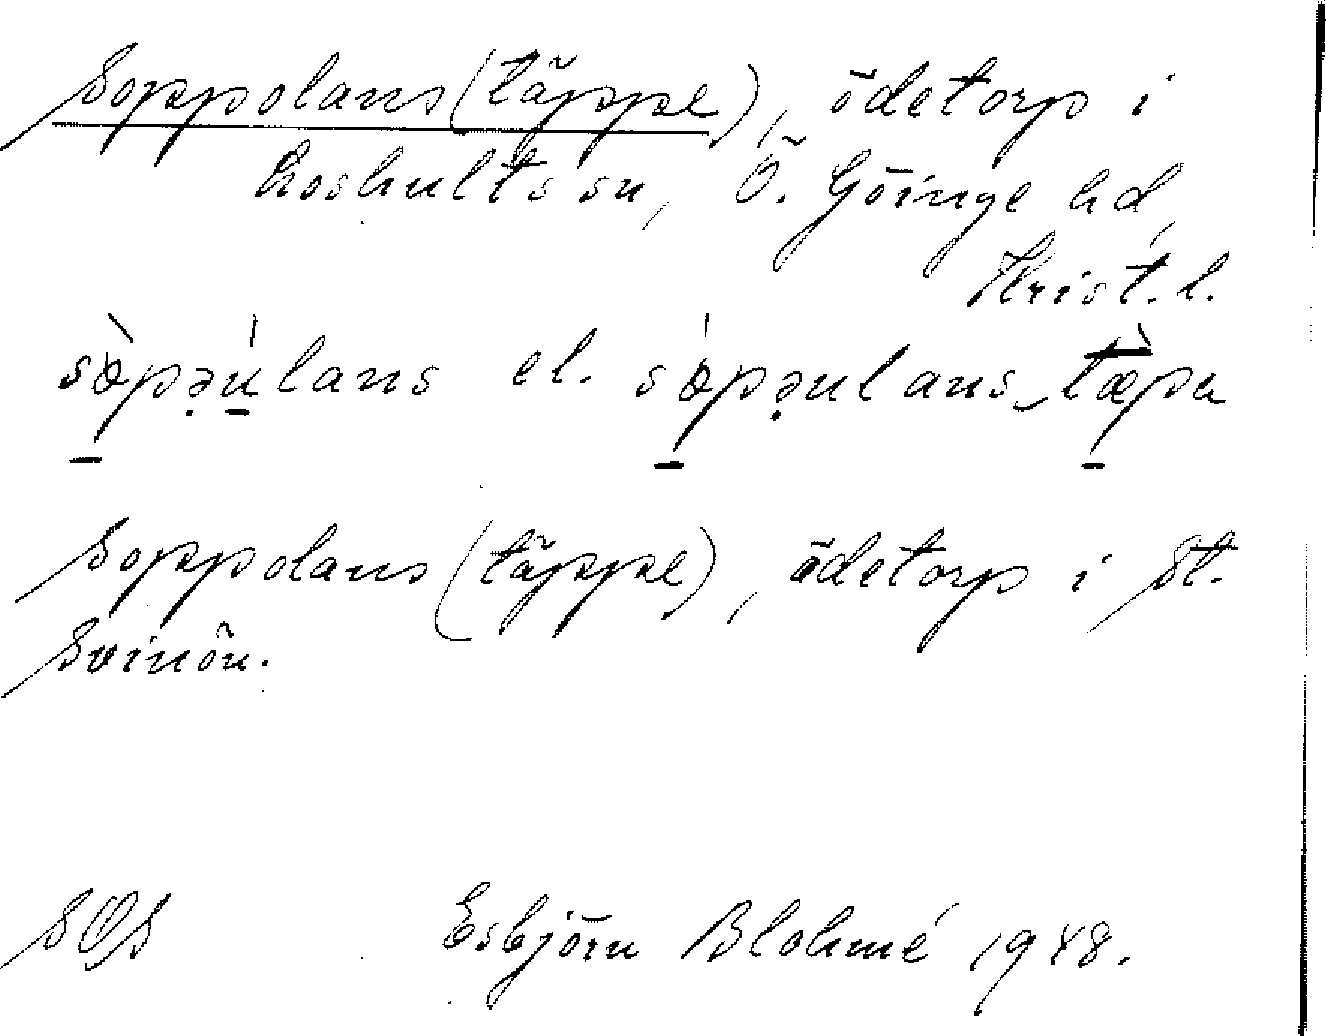 Soppolans(täppe), ödetorp i
Loshults sn, Ö. Göinge hd,
Krist. l.
sòpəúlans el. sópəulans_tæ̀pa
Soppolans(täppe), ödetorp i St.
Svinön.
SOS Esbjörn Blohmé 1948.